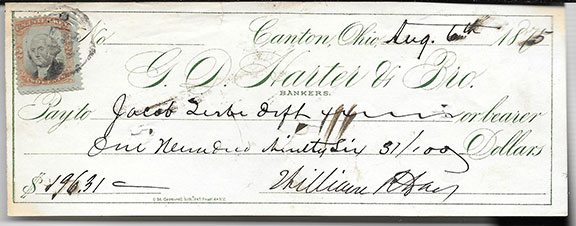 No Canton, Ohio, Aug. 6th 1875
G. D. Harter & Bro.
BANKERS.
Pay to Jacob Dft or bearer
One Hundred Ninety Six 31/100 Dollars
$ 196.31
William